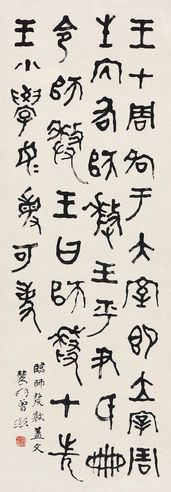 王才周各于大室即立宰周
生內右師嫠王乎尹氏冊
令師嫠王曰師嫠才先
王小學女敏可事
臨師嫠敦蓋文
農髯曾熙